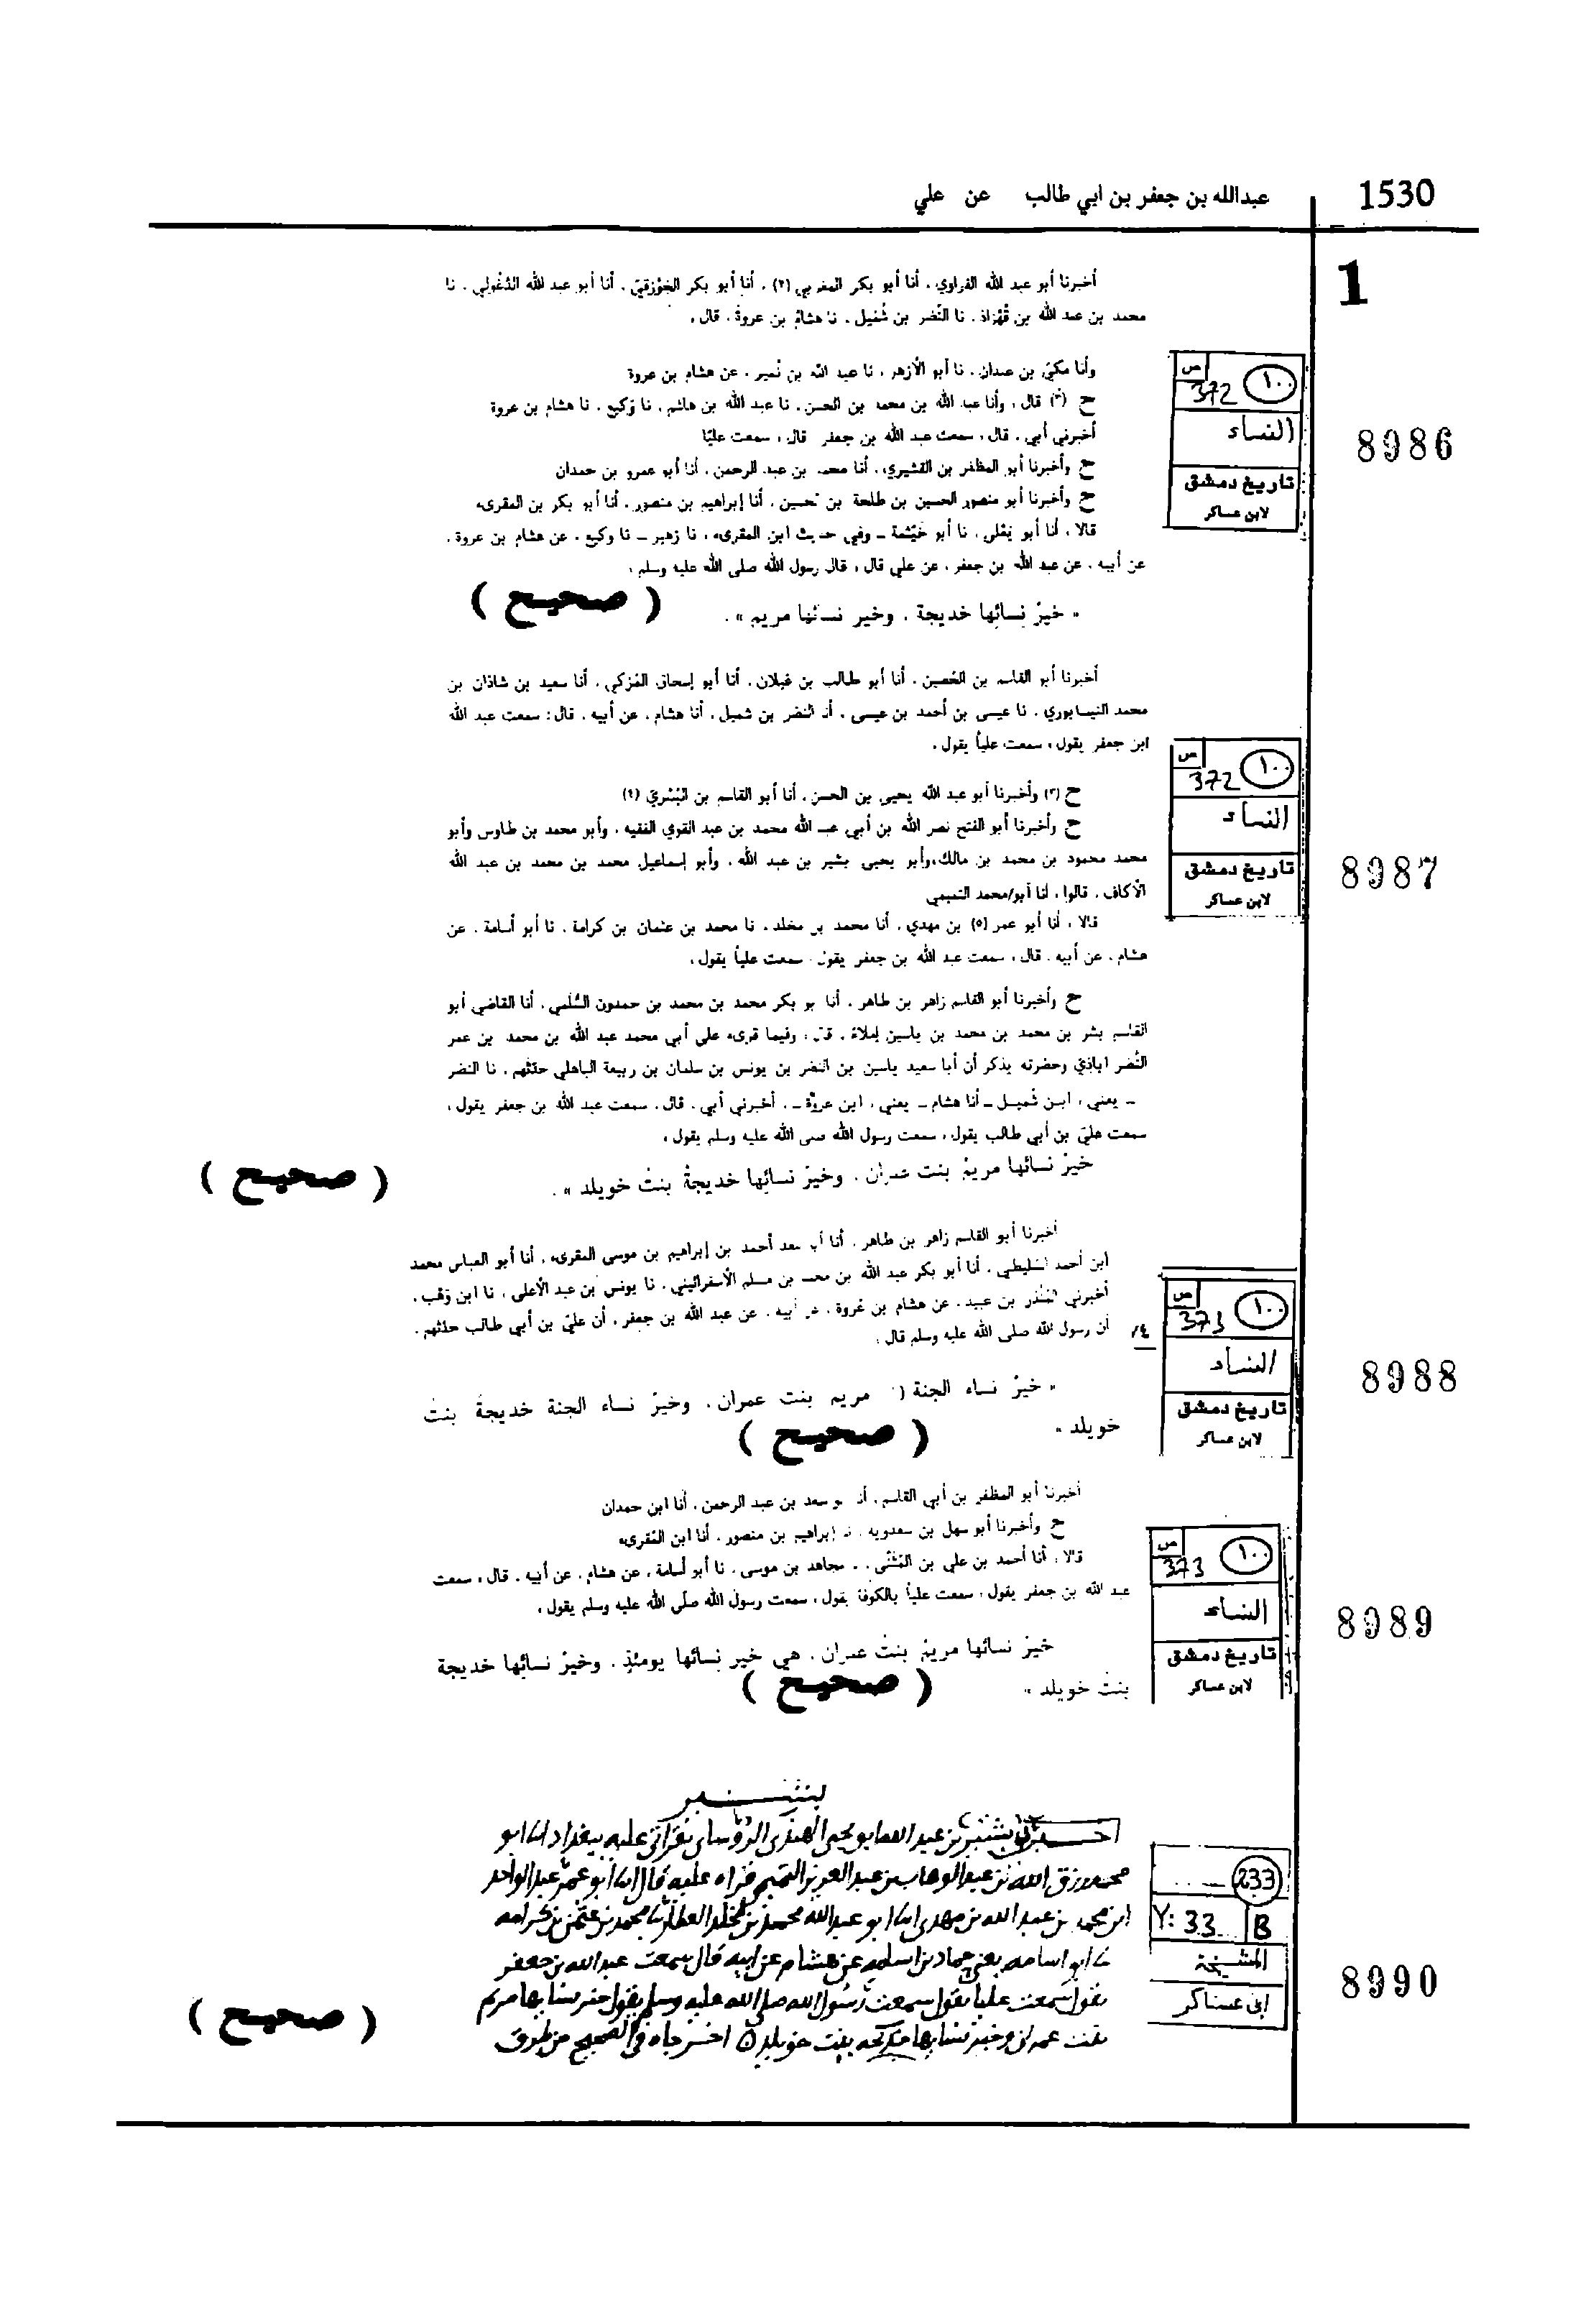 1530
عبدالله بن جعفر بن ابي طالب عن علي
1
أخبرنا أبو عبد الله الفراوي، أنا أبو بكر المغربي (٢)، أنا أبو بكر الجَوْزقيّ، أنا أبو عبد الله الدَّغُولي، نا
محمد بن عبد الله بن قُهْزاذ، نا النَّضر بن شُمَيل، نا هشام بن عروة، قال،
وأنا مكيّ بن عبدان، نا أبو الأزهر، نا عبد الله بن نُمير، عن هشام بن عروة
ح (٣) قال، وأنا عبد الله بن محمد بن الحسن، نا عبد الله بن هاشم، نا وَكيع، نا هشام بن عروة
أخبرني أبي، قال، سمعت عبد الله بن جعفر قال، سمعت عليّا
ح وأخبرنا أبو المظفر بن القشيري، أنا محمد بن عبد الرحمن، أنا أبو عمرو بن حمدان
ح وأخبرنا أبو منصور الحسين بن طلحة بن الحسين، أنا إبراهيم بن منصور، أنا أبو بكر بن المقرىء
قالا، أنا أبو يَعْلى، نا أبو خَيْثمة ـ وفي حديث ابن المقرىء، نا زهير ـ نا وكيع، عن هشام بن عروة،
عن أبيه، عن عبد الله بن جعفر، عن علي قال، قال رسول الله صلى الله عليه وسلم،
« خيرُ نِسائِها خديجة، وخير نسائها مريم ».
( صحيح )
ص
372
١٠٠
النساء
تاريخ دمشق
لابن عساكر
8986
أخبرنا أبو القاسم بن الحُصين، أنا أبو طالب بن غيلان، أنا أبو إسحاق المُزكي، أنا سعيد بن شاذان بن
محمد النيسابوري، نا عيسى بن أحمد بن عيسى، أنا النضر بن شميل، أنا هشام، عن أبيه، قال: سمعت عبد الله
ابن جعفر يقول، سمعت علياً يقول،
ح (٣) وأخبرنا أبو عبد الله يحيى بن الحسن، أنا أبو القاسم بن البُسْري (٤)
ح وأخبرنا أبو الفتح نصر الله بن أبي عبد الله محمد بن عبد القوي الفقيه، وأبو محمد بن طاوس وأبو
محمد محمود بن محمد بن مالك، وأبو يحيى بشير بن عبد الله، وأبو إسماعيل محمد بن محمد بن عبد الله
الأكاف، قالوا، أنا أبو/محمد التميمي
قالا، أنا أبو عمر (٥) بن مهدي، أنا محمد بن مخلد، نا محمد بن عثمان بن كرامة، نا أبو أسامة، عن
هشام، عن أبيه، قال، سمعت عبد الله بن جعفر يقول، سمعت علياً يقول،
ح وأخبرنا أبو القاسم زاهر بن طاهر، أنا أبو بكر محمد بن محمد بن حمدون السُّلَمي، أنا القاضي أبو
القاسم بشر بن محمد بن محمد بن ياسين إملاءً، قال، وفيما قرىء على أبي محمد عبد الله بن محمد بن عمر
النَّضر اباذيّ وحضرته يذكر أن أبا سعيد ياسين بن النضر بن يونس بن سلمان بن ربيعة الباهلي حدّثهم، نا النضر
ـ يعني، ابن شُميل ـ أنا هشام ـ يعني، ابن عروة ـ، أخبرني أبي، قال، سمعت عبد الله بن جعفر يقول،
سمعت عليّ بن أبي طالب يقول، سمعت رسول الله صلى الله عليه وسلم يقول،
خيرُ نسائها مريمُ بنت عمران، وخيرُ نسائِها خديجةُ بنتُ خويلد ».
( صحيح )
ص
372
١٠٠
النساء
تاريخ دمشق
لابن عساكر
8987
أخبرنا أبو القاسم زاهر بن طاهر، أنا أبو سعد أحمد بن إبراهيم بن موسى المقرىء، أنا أبو العباس محمد
ابن أحمد السليطي، أنا أبو بكر عبد الله بن محمد بن مسلم الأسفرائيني، نا يونس بن عبد الأعلى، نا ابن وَهْب،
أخبرني المُنْذر بن عبيد، عن هشام بن عُروة، عن أبيه، عن عبد الله بن جعفر، أن عليّ بن أبي طالب حدّثهم،
أن رسول الله صلى الله عليه وسلم قال،
« خيرُ نساء الجنة مريم بنت عمران، وخيرُ نساء الجنة خديجةُ بنتُ
خويلد »
( صحيح )
ص
373
١٠٠
النساء
تاريخ دمشق
لابن عساكر
8988
أخبرنا أبو المظفر بن أبي القاسم، أنا أبو سعد بن عبد الرحمن، أنا ابن حمدان
ح وأخبرنا أبو سهل بن سعدويه، أنا إبراهيم بن منصور، أنا ابن المُقرىء
قالا، أنا أحمد بن علي بن المُثَنّى، مجاهد بن موسى، نا أبو أسامة، عن هشام، عن أبيه، قال، سمعت
عبد الله بن جعفر يقول، سمعت علياً بالكوفة يقول، سمعت رسول الله صلّى الله عليه وسلم يقول،
خيرُ نسائها مريمُ بنتُ عمران، هي خير نِسائها يومئذٍ، وخيرُ نسائِها خديجة
بنتُ خويلد »
( صحيح )
ص
373
١٠٠
النساء
تاريخ دمشق
لابن عساكر
8989
بشير
اخبرنا بشير بن عبد الله ابو يحيى الهندى الرؤسانى بقراتى عليه ببغداد انا ابو
محمد رزق الله بن عبد الوهاب بن عبد العزيز التميمى قراه عليه قال انا ابو عمر عبد الواحد
ابن محمد بن عبد الله بن مهدى انا ابو عبد الله محمد بن مخلد العطار نا محمد بن عثمن بن كرامه
نا ابو اسامه يعنى حماد بن اسامه عن هشام عن ابيه قال سمعت عبد الله بن جعفر
يقول سمعت عليا يقول سمعت رسول الله صلى الله عليه وسلم يقول خير نسايها مريم
بنت عمران وخير نسايها خديجه بنت خويلد اخرجاه فى الصحيح من طرق
( صحيح )
233
Y: 33 B
المشيخة
ابن عساكر
8990